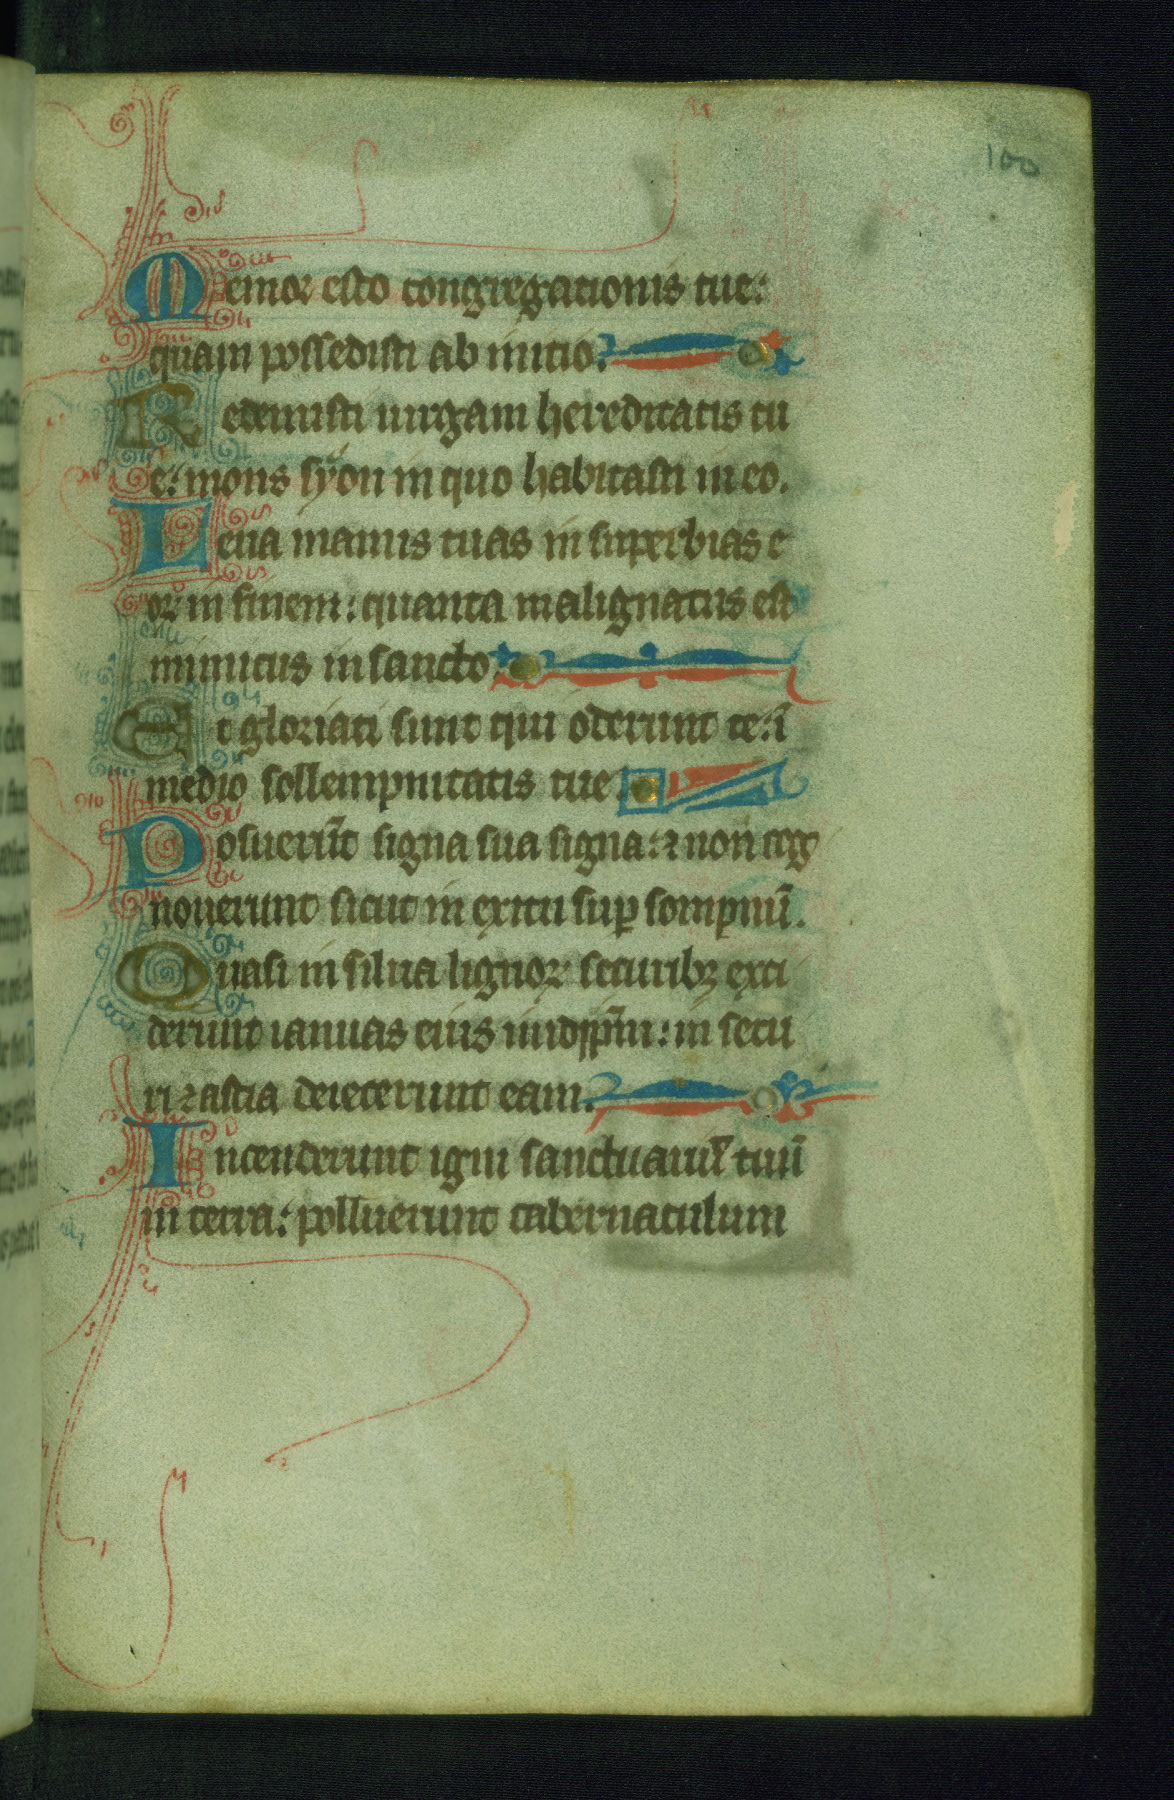 100
Memor esto congregationis tue:
quam possedisti ab initio.
Redemisti uirgam hereditatis tu
e: mons syon in quo habitasti in eo.
Leua manus tuas in superbias e
or in finem: quanta malignatus est
inimicus in sancto.
Et gloriati sunt qui oderunt te: ī
medio sollempnitatis tue.
Posuerūt signa sua signa: ⁊ non cog
nouerunt sicut in exitu suꝑ sompnū.
Quasi in silua lignoꝝ securibꝫ exci
derunt ianuas eius in idip̄m: in secu
ri ⁊ ascia deiecerunt eam.
Incenderunt igni sanctuariū tuū
in terra: polluerunt tabernaculum